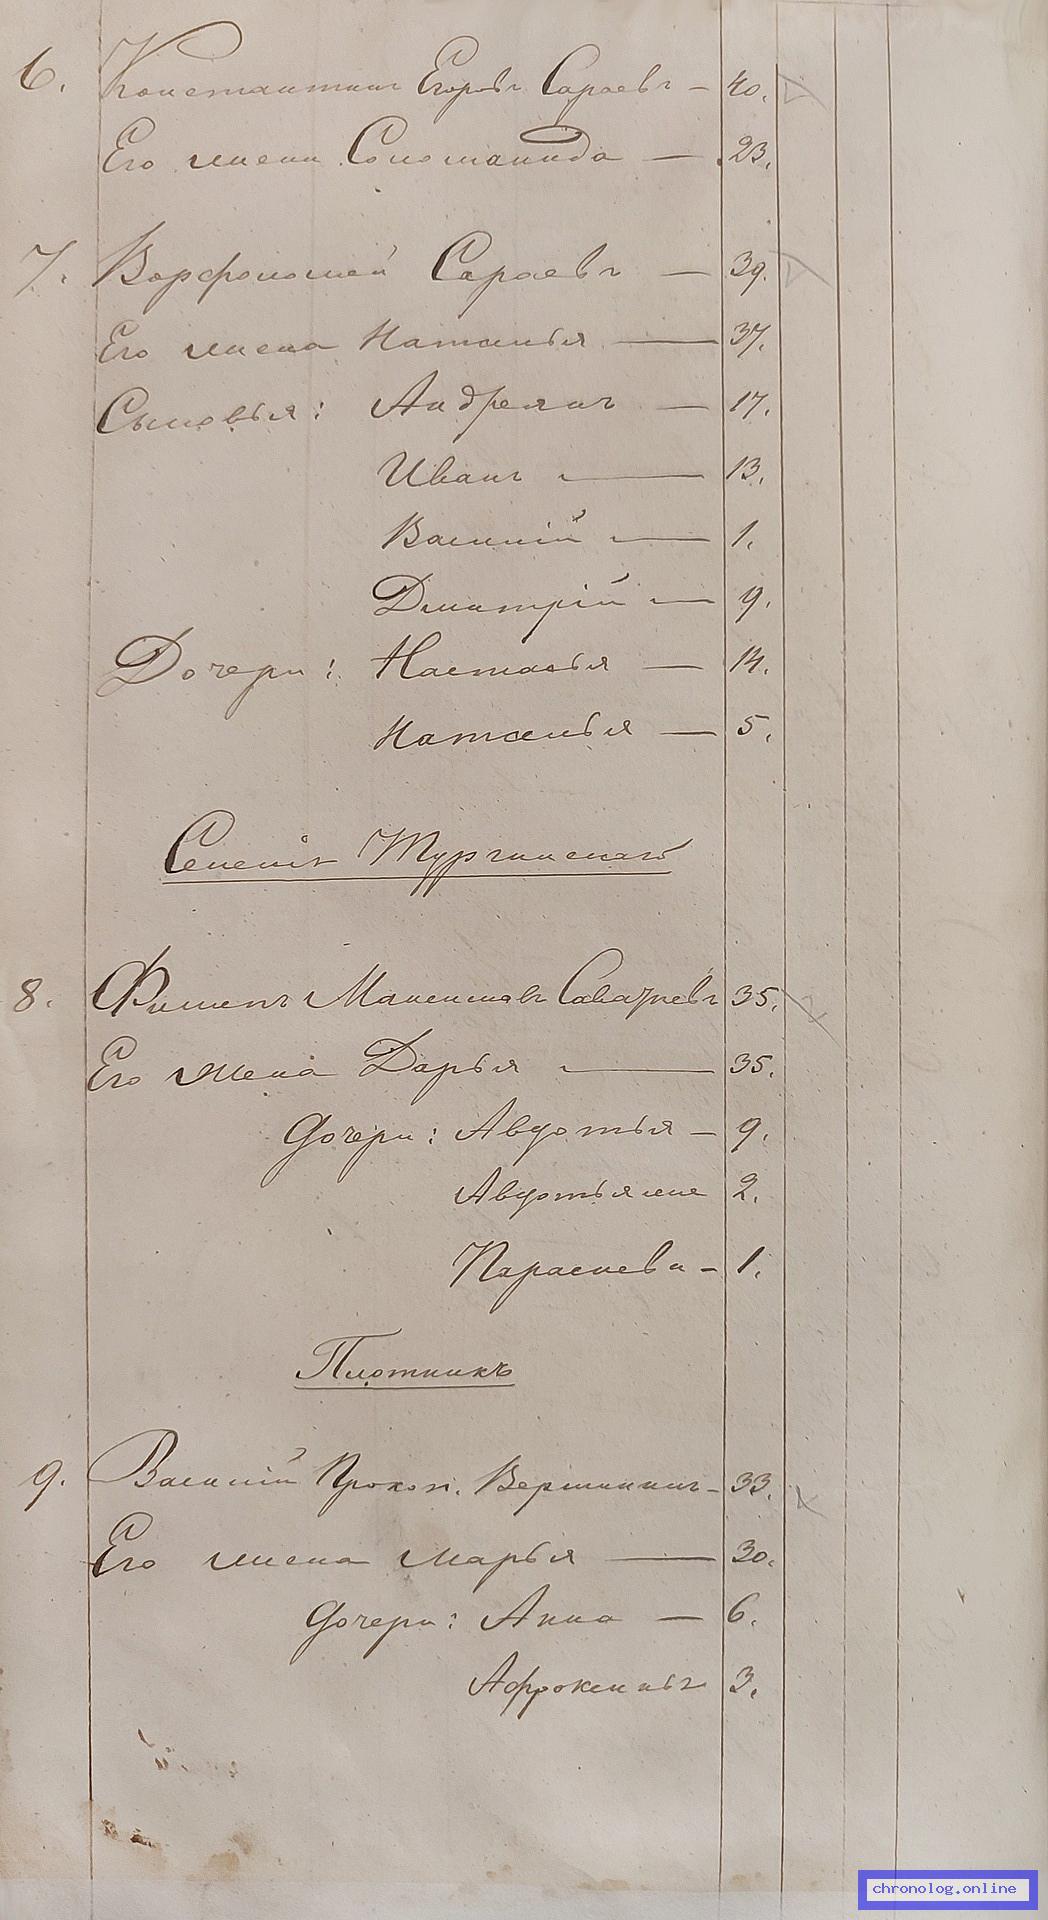 6. Константинъ Егоровъ Сараевъ — 40.
Его жена Соломанида — 23.
7. Варфоломей Сараевъ — 39.
Его жена Наталья — 37.
Сыновья: Андреянъ — 17.
Иванъ — 13.
Василій — 1.
Дмитрій — 9.
Дочери: Настасья — 14.
Наталья — 5.
Селенія Тургинскаго
8. Филипъ Максимовъ 35.
Его жена Дарья — 35.
Дочери: Авдотья — 9.
Авдотья 2.
Парасковья — 1.
Плотникъ
9. Василій Прокоп. Вершининъ — 33.
Его жена Марья — 30.
Дочери: Анна — 6.
3.
chronolog.online